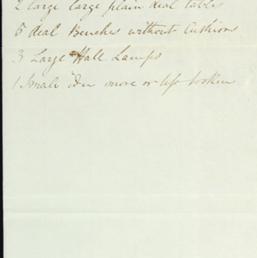 2 large large plain deal tables
5 deal Benches without Cushions
3 Large Hall Lamps
1 Small do more or less broken